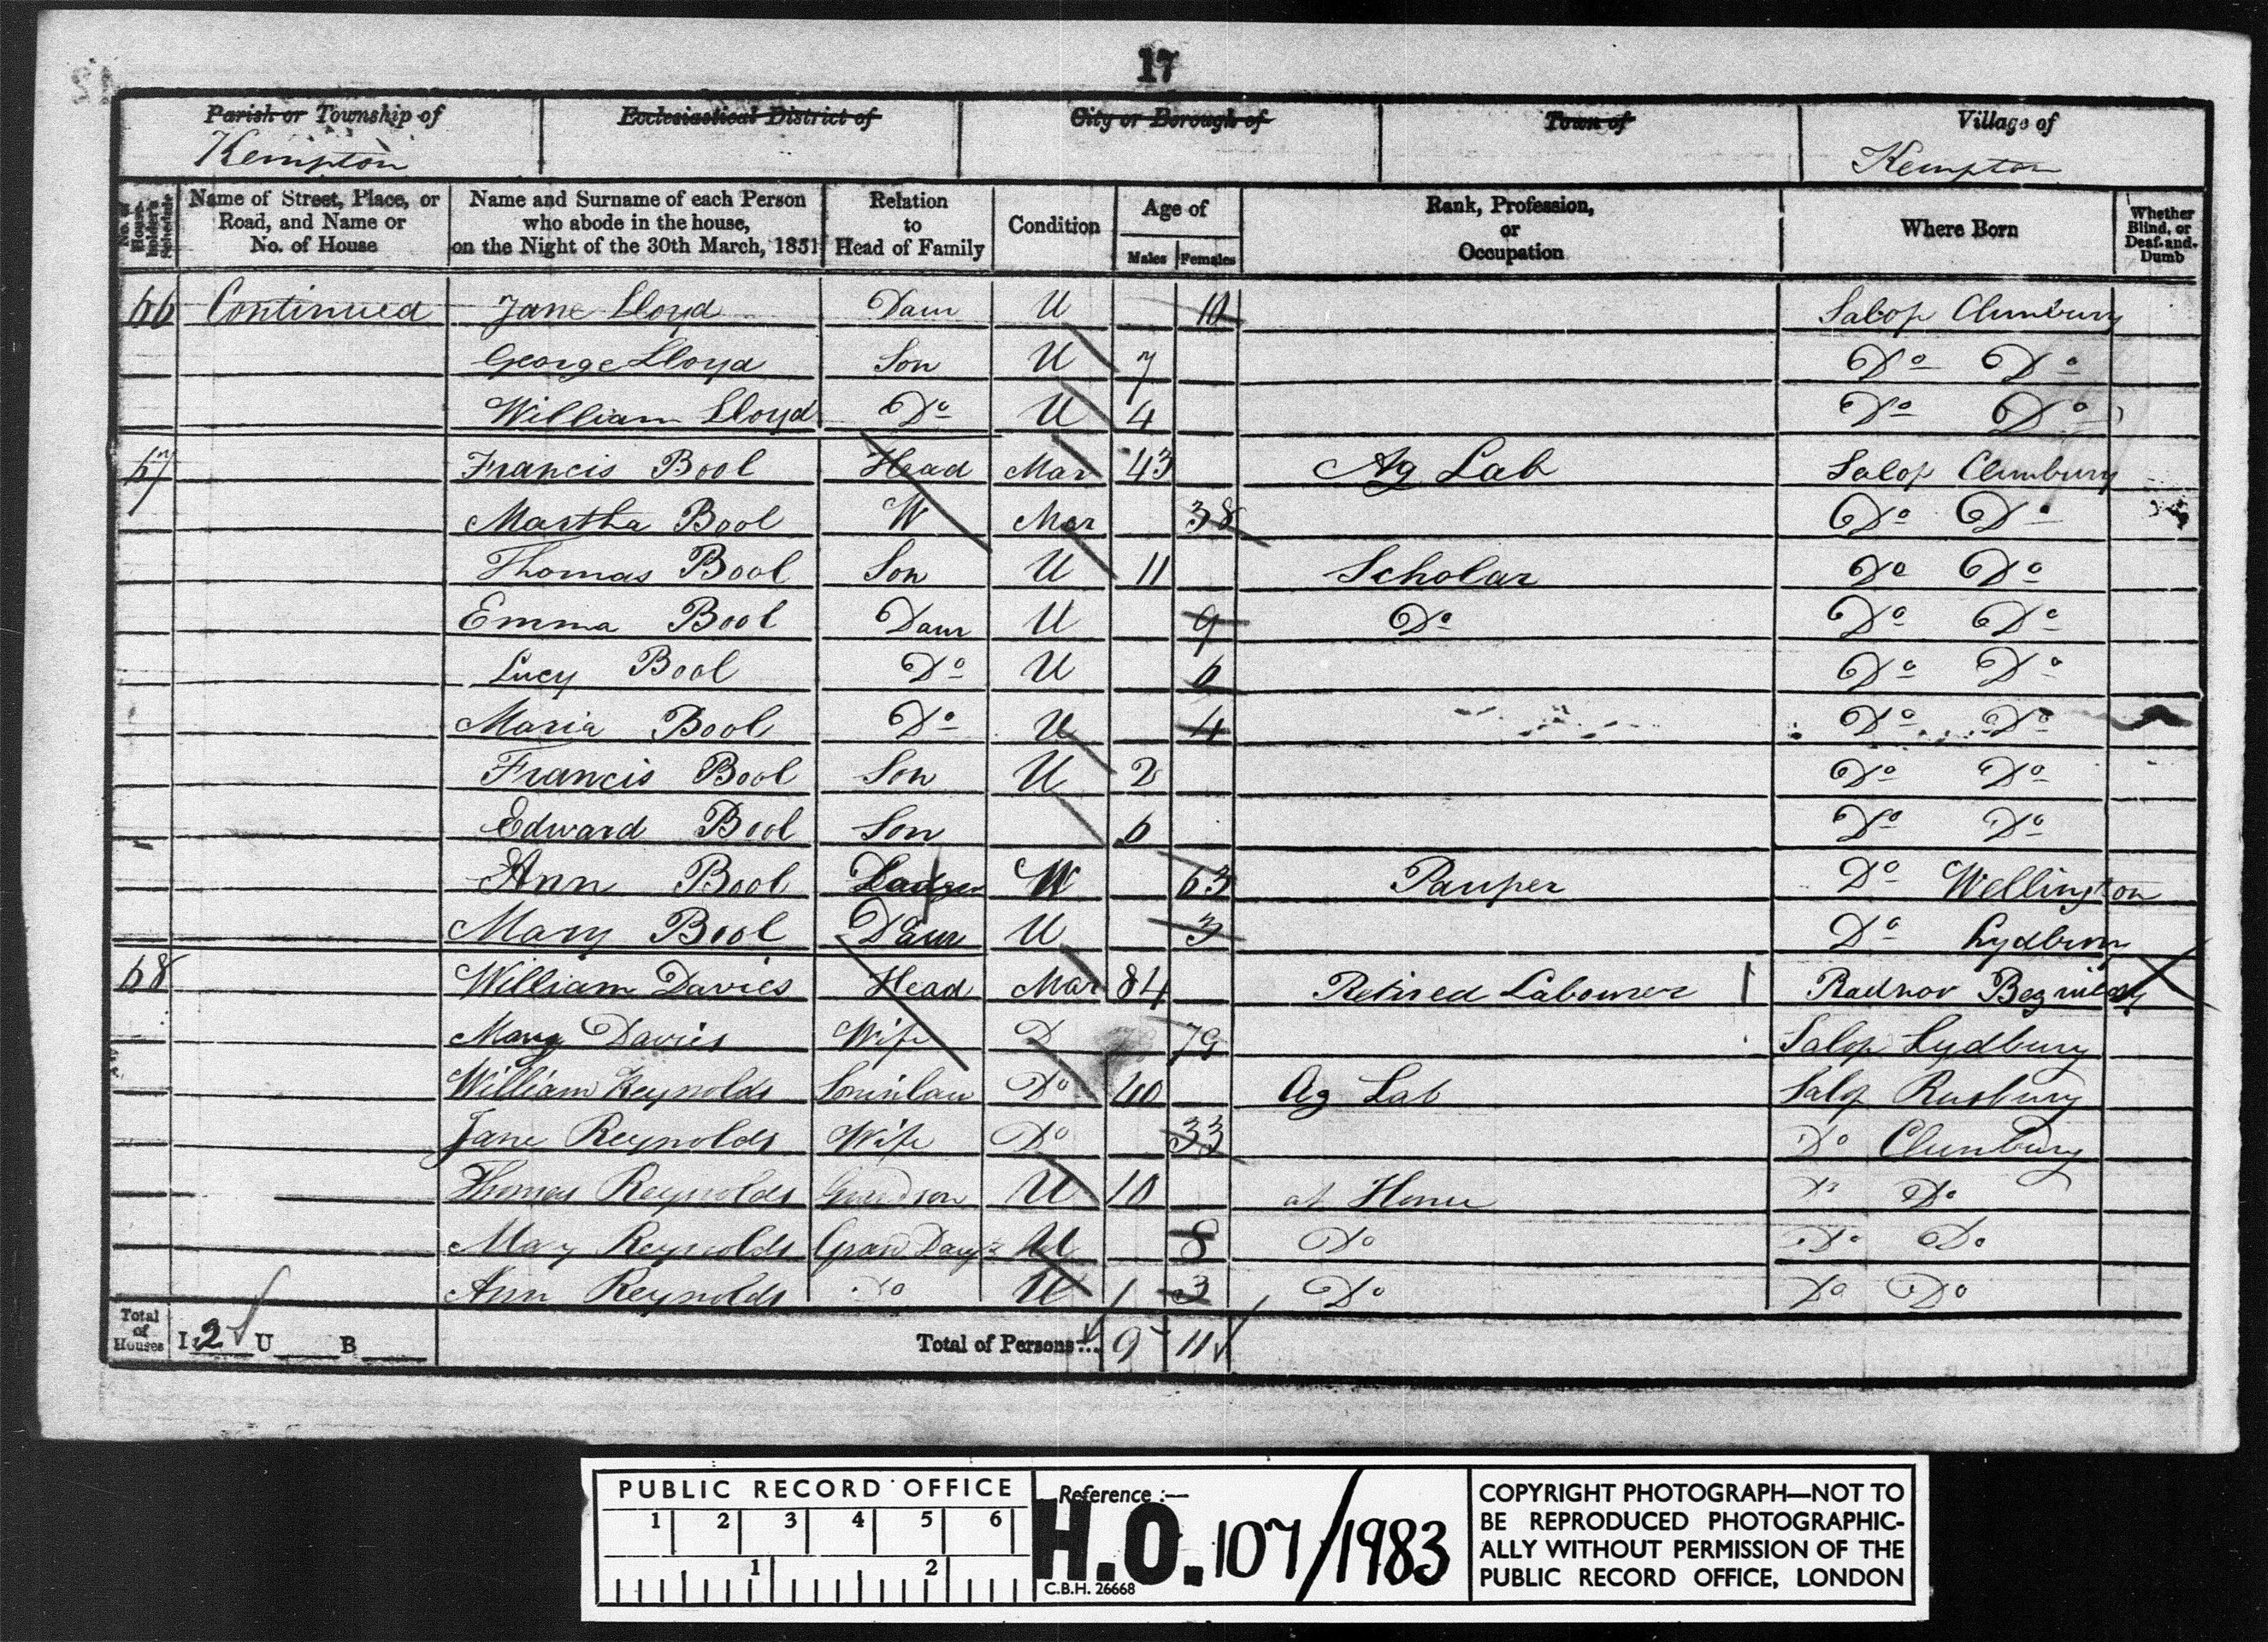 17
Parish or Township of
Kempton
Ecclesiastical District of
City or Borough of
Town of
Village of
Kempton
No. of House-holder's Schedule
Name of Street, Place, or Road, and Name or No. of House
Name and Surname of each Person who abode in the house, on the Night of the 30th March, 1851
Relation to Head of Family
Condition
Age of
Males Females
Rank, Profession, or Occupation
Where Born
Whether Blind, or Deaf-and-Dumb
66 Continued Jane Lloyd Daur U 10 Salop Clunbury
George Lloyd Son U 7 Do Do
William Lloyd Do U 4 Do Do
67 Francis Bool Head Mar 43 Ag Lab Salop Clunbury
Martha Bool W Mar 38 Do Do
Thomas Bool Son U 11 Scholar Do Do
Emma Bool Daur U 9 Do Do Do
Lucy Bool Do U 6 Do Do
Maria Bool Do U 4 Do Do
Francis Bool Son U 2 Do Do
Edward Bool Son 6 Do Do
Ann Bool Lodger W 63 Pauper Do Wellington
Mary Bool Daur U 3 Do Lydbury
68 William Davies Head Mar 84 Retired Labourer Radnor
Mary Davies Wife D 79 Salop Lydbury
William Reynolds Soninlaw Do 40 Ag Lab Salop Rusbury
Jane Reynolds Wife Do 33 Do Clunbury
Thomas Reynolds Grandson U 10 at Home Do Do
Mary Reynolds Gran Daugr U 8 Do Do Do
Ann Reynolds Do U 3 Do Do Do
Total of Houses I 2 U B Total of Persons... 9 11
PUBLIC RECORD OFFICE
1 2 3 4 5 6
1 2
Reference :—
H.O. 107/1983
C.B.H. 26668
COPYRIGHT PHOTOGRAPH—NOT TO
BE REPRODUCED PHOTOGRAPHIC-
ALLY WITHOUT PERMISSION OF THE
PUBLIC RECORD OFFICE, LONDON